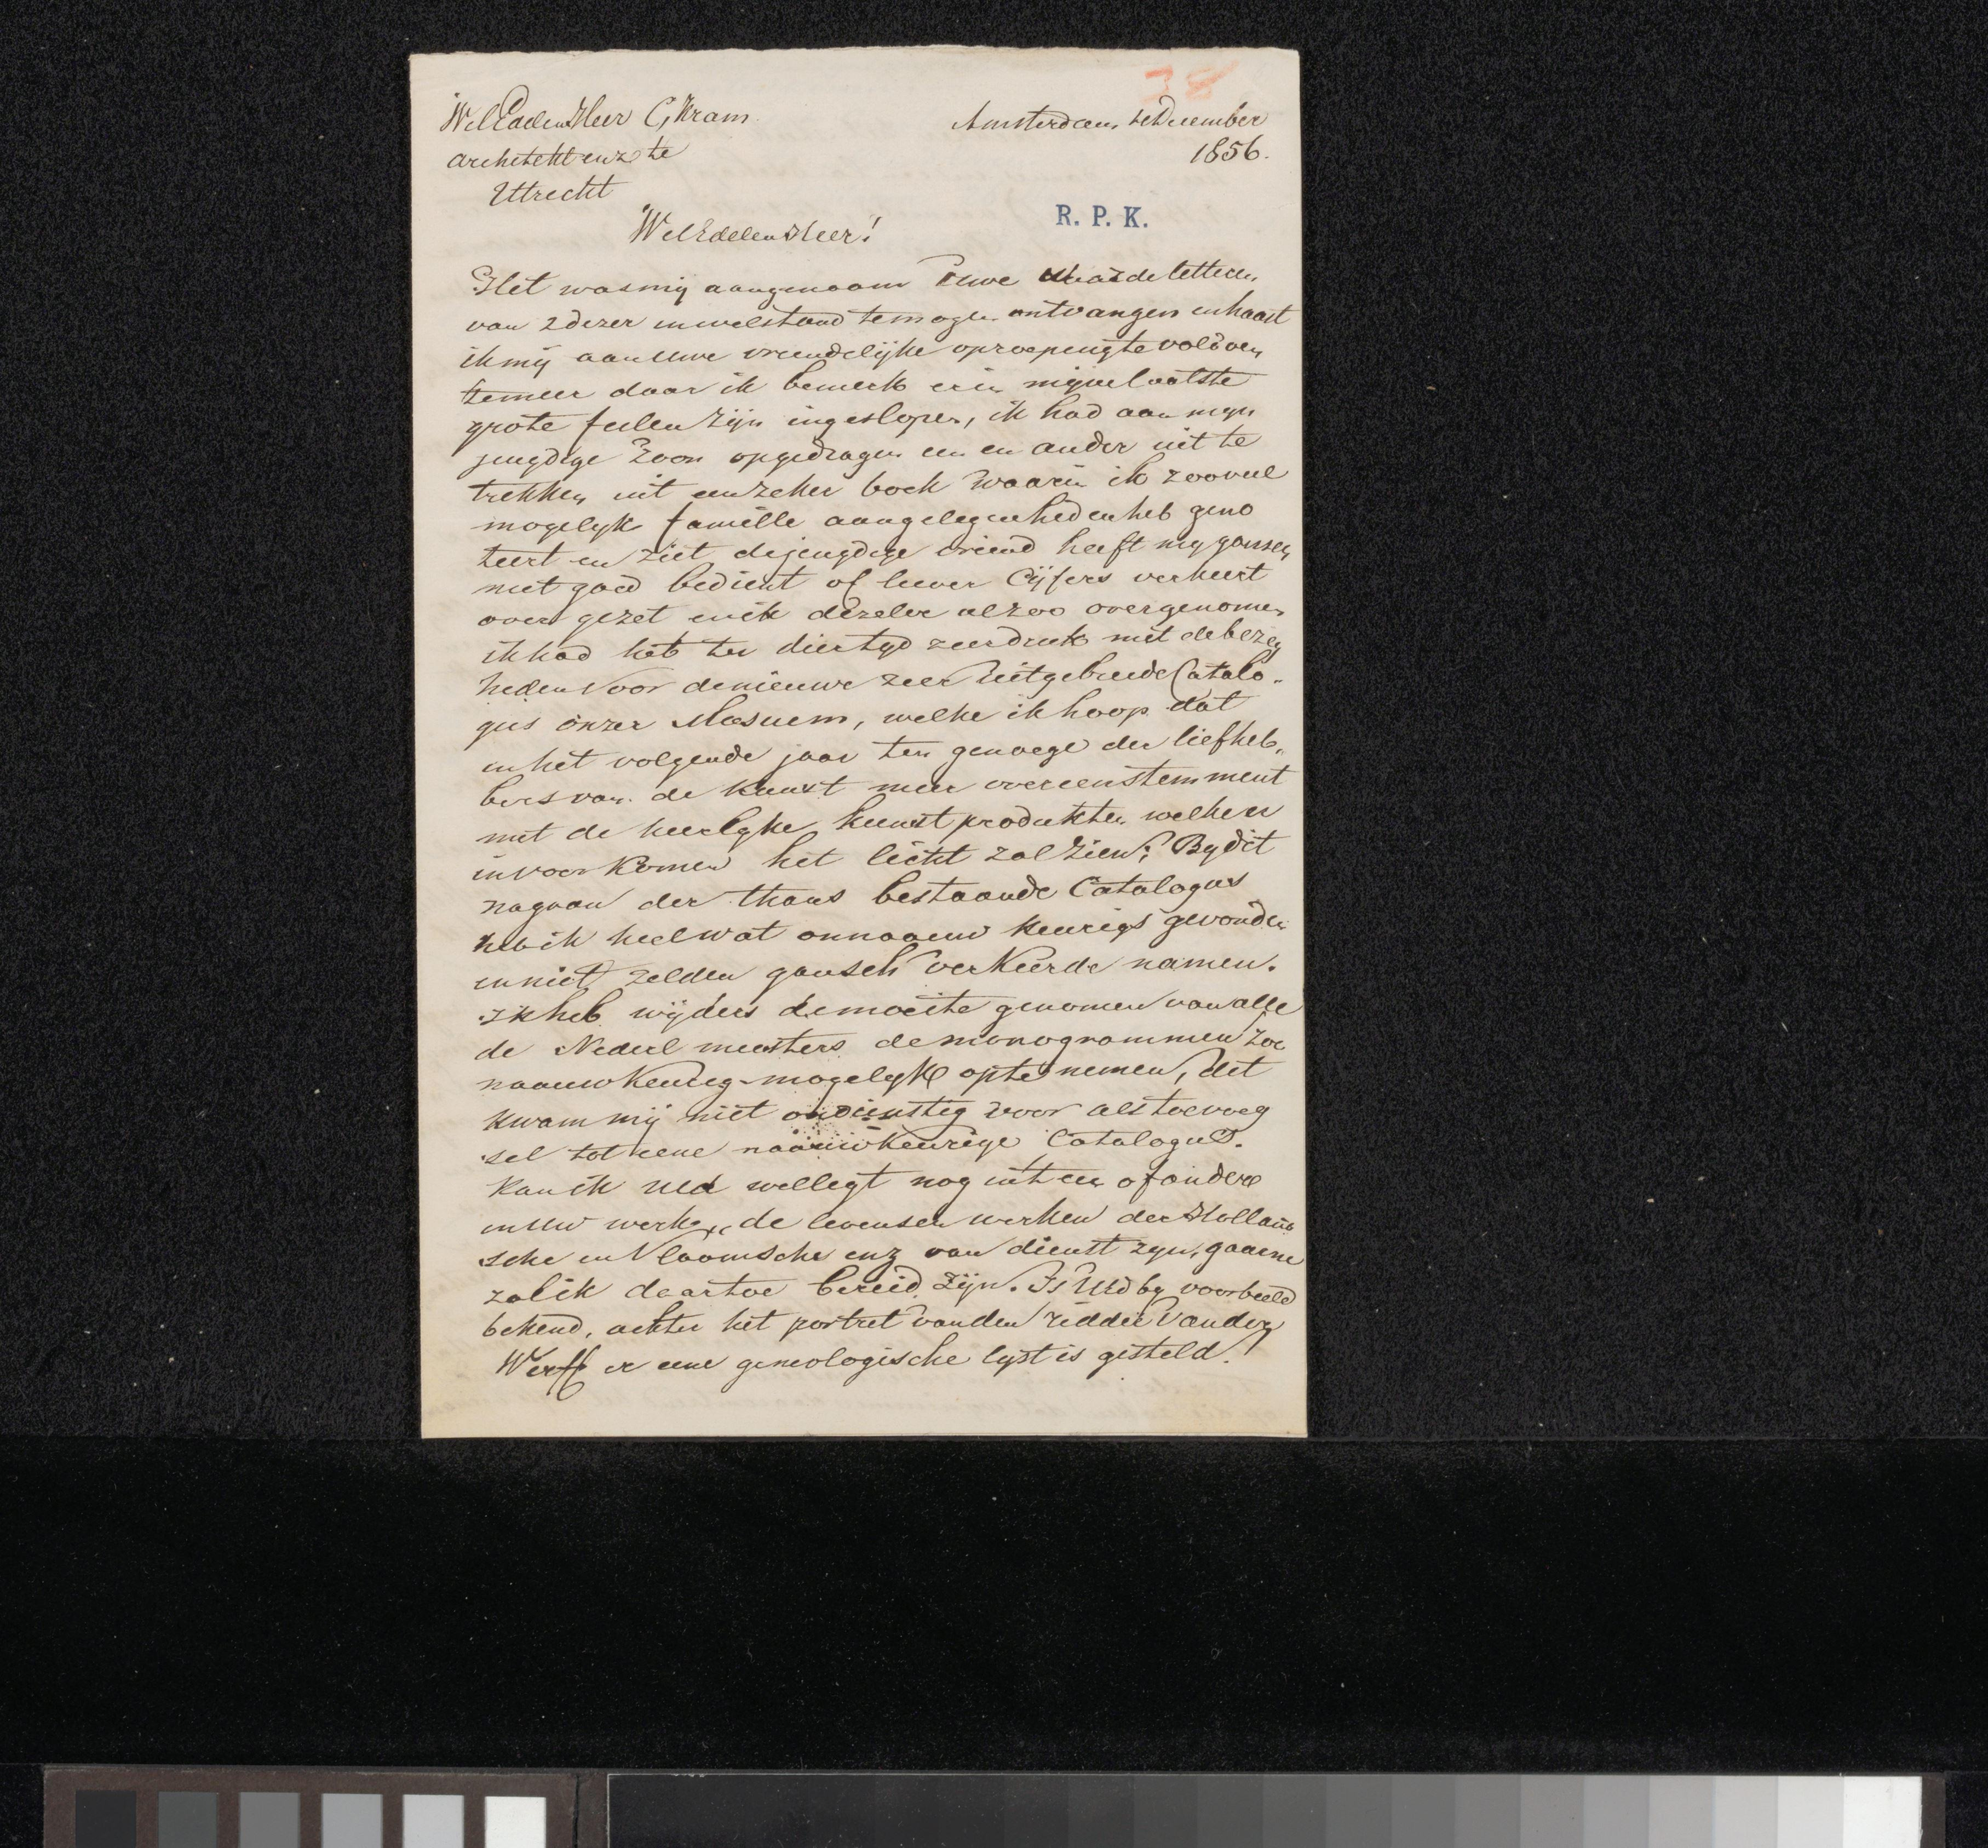 38
WelEdelen Heer C, Kram
Amsterdam, December
architekt enz te
1856.
Uttrecht
R. P. K.
WelEdelen Heer!
Het was mij aangenaam Uwe letteren
van 2 dezer in welstand te mogen ontvangen en haast
ik mij aan Uwe vriendelijke oproeping te voldoen
temeer daar ik bemerk er in mijne laatste
grote feilen zijn ingeslopen, ik had aan mijn
jeugdige Zoon opgedragen een en ander uit te
trekken uit een zeker boek waarin ik zooveel
mogelyk famille aangelegenheden heb geno
teert en ziet de jeugdige vriend heeft my gansch
niet goed bedient of liever Cijfers verkeert
over gezet en ik dezelve alzoo overgenomen
ik had het ter dier tyd zeer druk met de bezig
heden voor de nieuwe zeer Uitgebreide Catalo-
gus onzer Museum, welke ik hoop dat
in het volgende jaar ten genoege der liefheb„
bers van de kunst meer overeenstemment
met de heerlyke kunst produkten welke er
in voor komen het licht zal zien; By dit
nagaan der thans bestaande Catalogus
heb ik heel wat onnaauw keurigs gevonden
en niet zelden gansch verkeerde namen.
Ik heb wijders de moeite genomen van alle
de Nederl meesters de monogrammen zoo
naauwkeurig mogelyk op te nemen, dit
kwam mij niet ondienstig voor als toevoeg
sel tot eene naauwkeurige Catalogus.
Kan ik Ued wellegt nog in t een of andere
in Uw werk, de levens en werken der Holland
sche en Vlaamsche enz van dienst zyn, gaarne
zal ik daartoe bereid zijn. Is Ued by voorbeeld
bekend, achter het portret van den ridder Van der
Werff er eene geneologische lyst is gesteld!